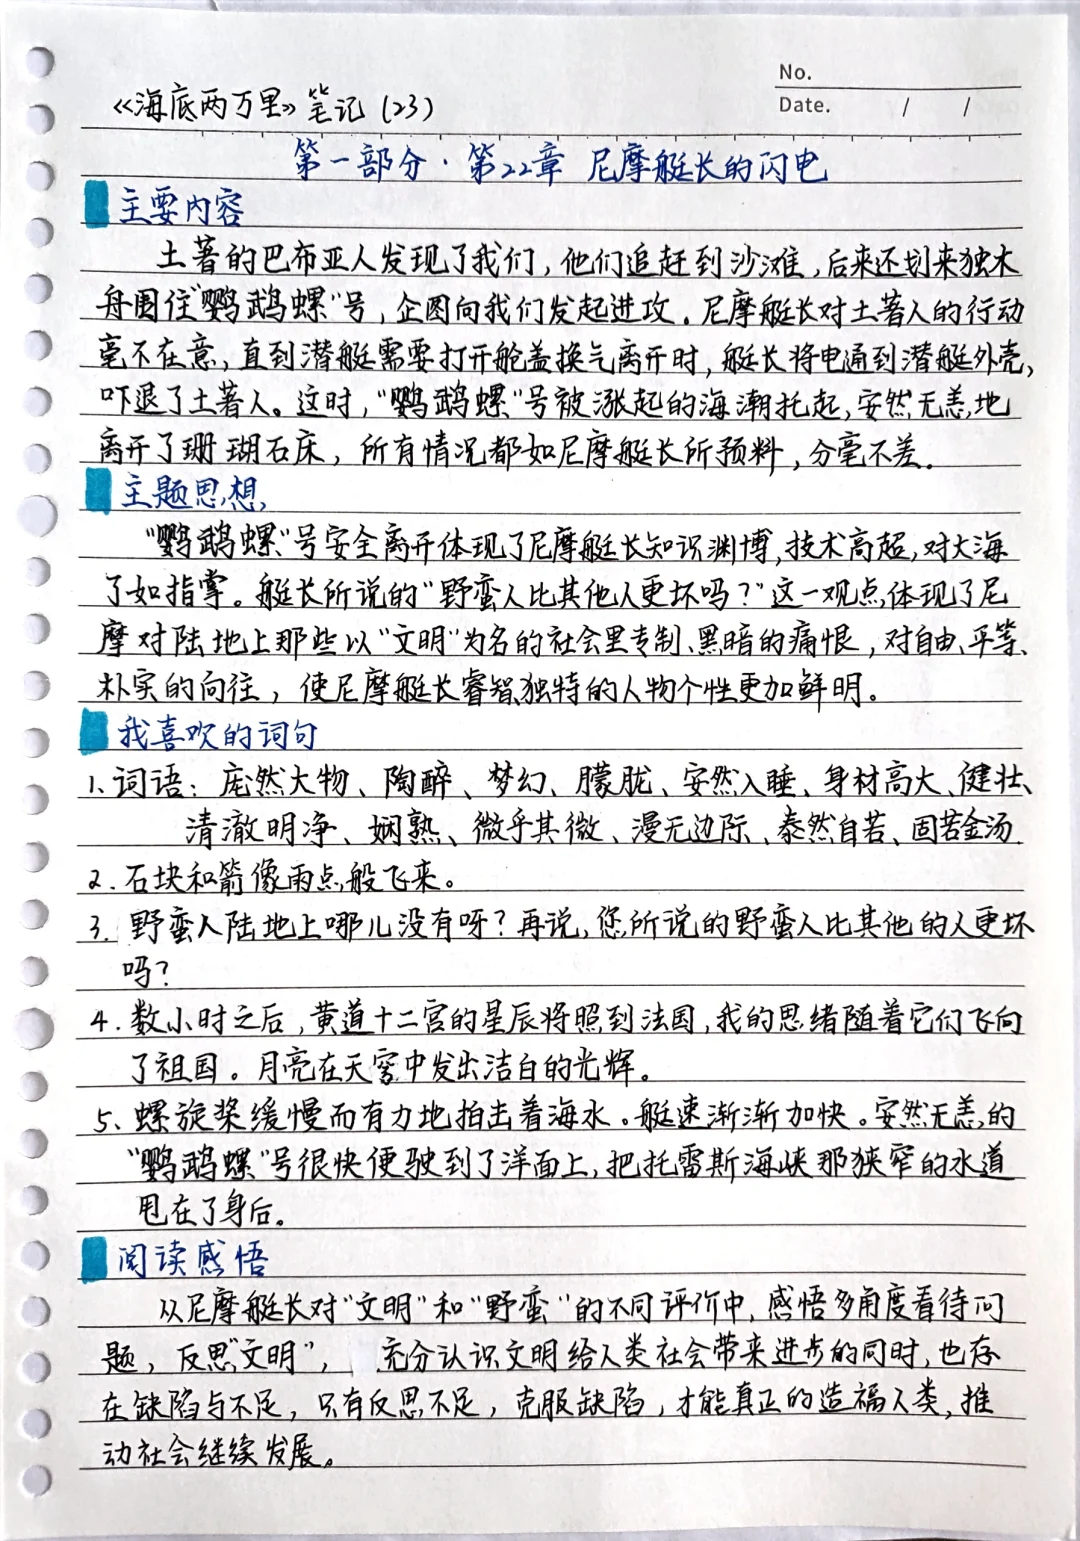 No.
《海底两万里》笔记(23)
Date. / /
第一部分·第22章 尼摩艇长的闪电
主要内容
土著的巴布亚人发现了我们,他们追赶到沙滩,后来还划来独木
舟围住"鹦鹉螺"号,企图向我们发起进攻。尼摩艇长对土著人的行动
毫不在意,直到潜艇需要打开舱盖换气离开时,艇长将电通到潜艇外壳,
吓退了土著人。这时,"鹦鹉螺"号被涨起的海潮托起,安然无恙地
离开了珊瑚石床,所有情况都如尼摩艇长所预料,分毫不差。
主题思想
"鹦鹉螺"号安全离开体现了尼摩艇长知识渊博,技术高超,对大海
了如指掌。艇长所说的"野蛮人比其他人更坏吗?"这一观点体现了尼
摩对陆地上那些以"文明"为名的社会里专制、黑暗的痛恨,对自由、平等、
朴实的向往,使尼摩艇长睿智独特的人物个性更加鲜明。
我喜欢的词句
1.词语:庞然大物、陶醉、梦幻、朦胧、安然入睡、身材高大、健壮、
清澈明净、娴熟、微乎其微、漫无边际、泰然自若、固若金汤.
2.石块和箭像雨点般飞来。
3.野蛮人陆地上哪儿没有呀?再说,您所说的野蛮人比其他的人更坏
吗?
4.数小时之后,黄道十二宫的星辰将照到法国,我的思绪随着它们飞向
了祖国。月亮在天穹中发出洁白的光辉。
5、螺旋桨缓慢而有力地拍击着海水。艇速渐渐加快。安然无恙的
"鹦鹉螺"号很快便驶到了洋面上,把托雷斯海峡那狭窄的水道
甩在了身后。
阅读感悟
从尼摩艇长对"文明"和"野蛮"的不同评价中,感悟多角度看待问
题,反思"文明",充分认识文明给人类社会带来进步的同时,也存
在缺陷与不足,只有反思不足,克服缺陷,才能真正的造福人类,推
动社会继续发展。